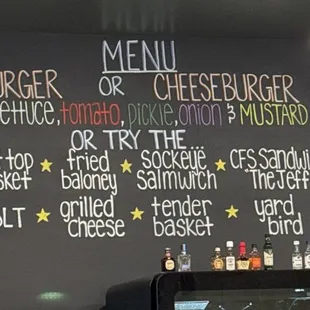 MENU
URGER OR CHEESEBURGER
ettuce, tomato, pickle, onion & MUSTARD
OR TRY THE...
top fried sockeye CFS Sandwi
sket baloney salmwich "The Jeff
BLT grilled tender yard
cheese basket bird